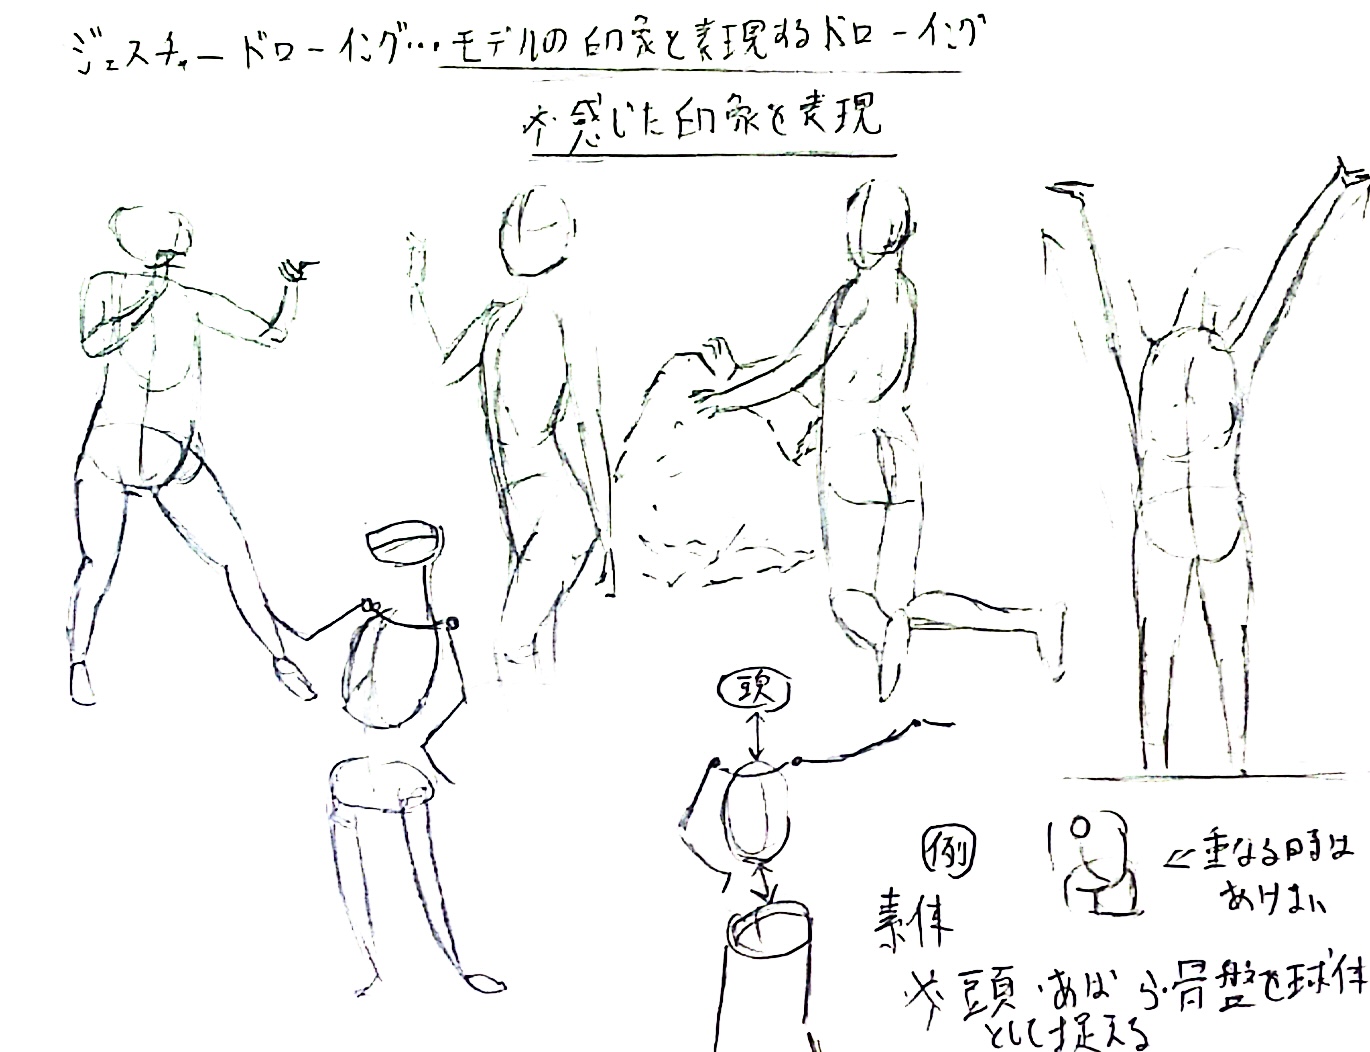 ジェスチャードローイング…モデルの印象を表現するドローイング
※感じた印象を表現
頭
例
←重なる時は
あけない
素体
※頭・あばら・骨盤を球体
として捉える